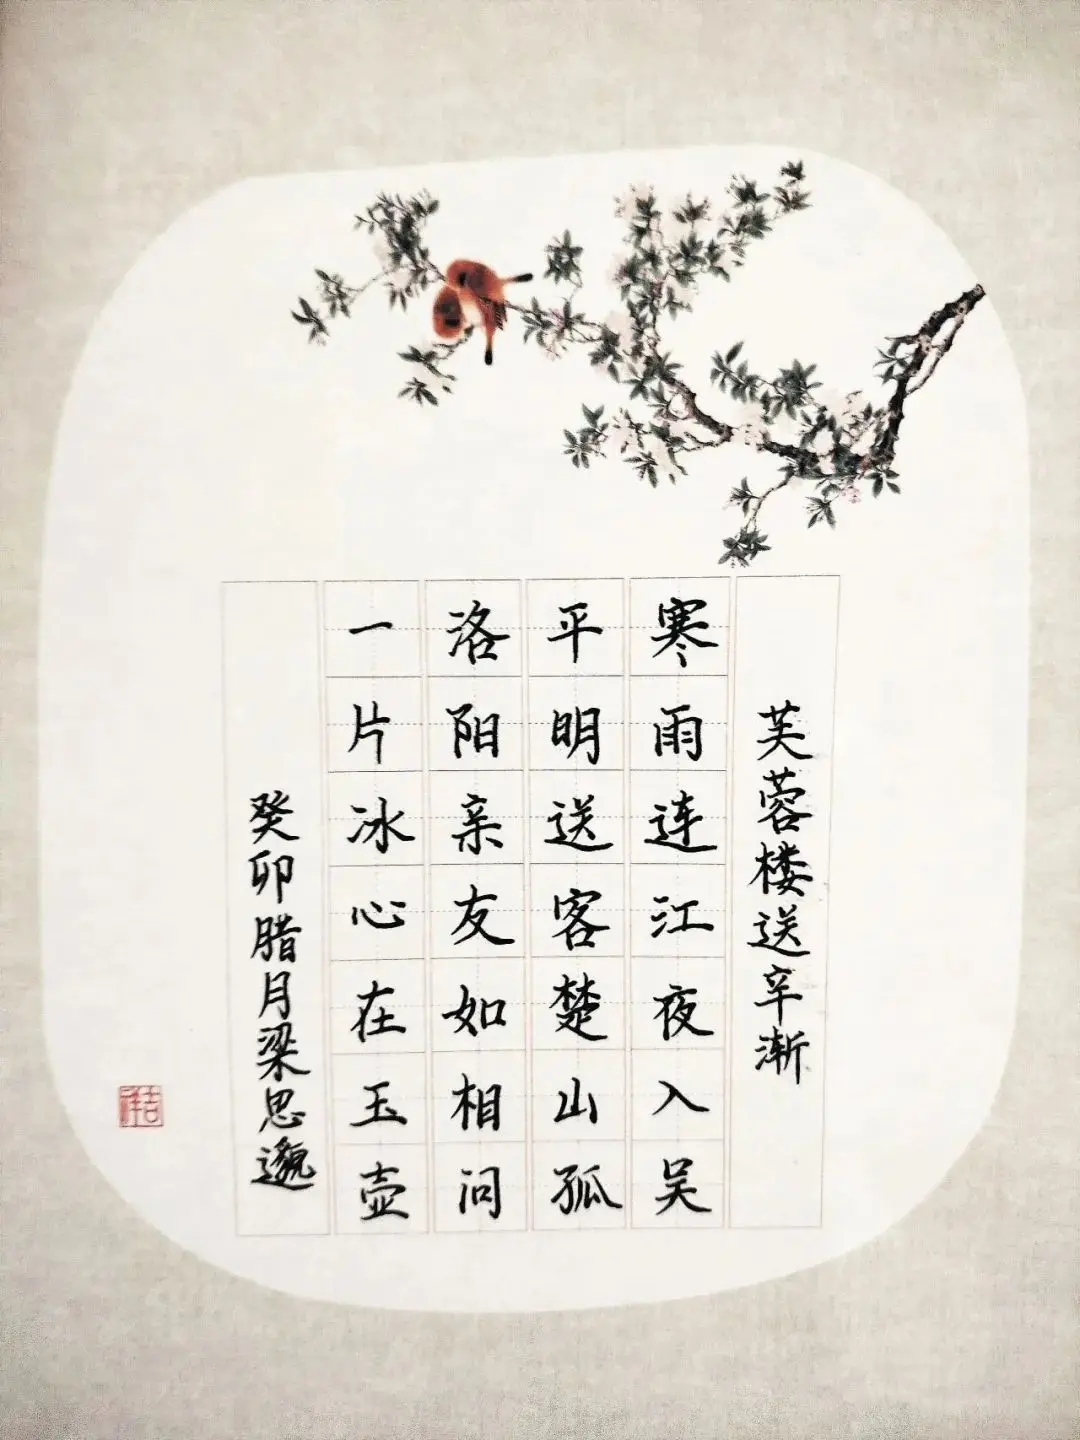 芙蓉楼送辛渐
寒雨连江夜入吴
平明送客楚山孤
洛阳亲友如相问
一片冰心在玉壶
癸卯腊月梁思邈